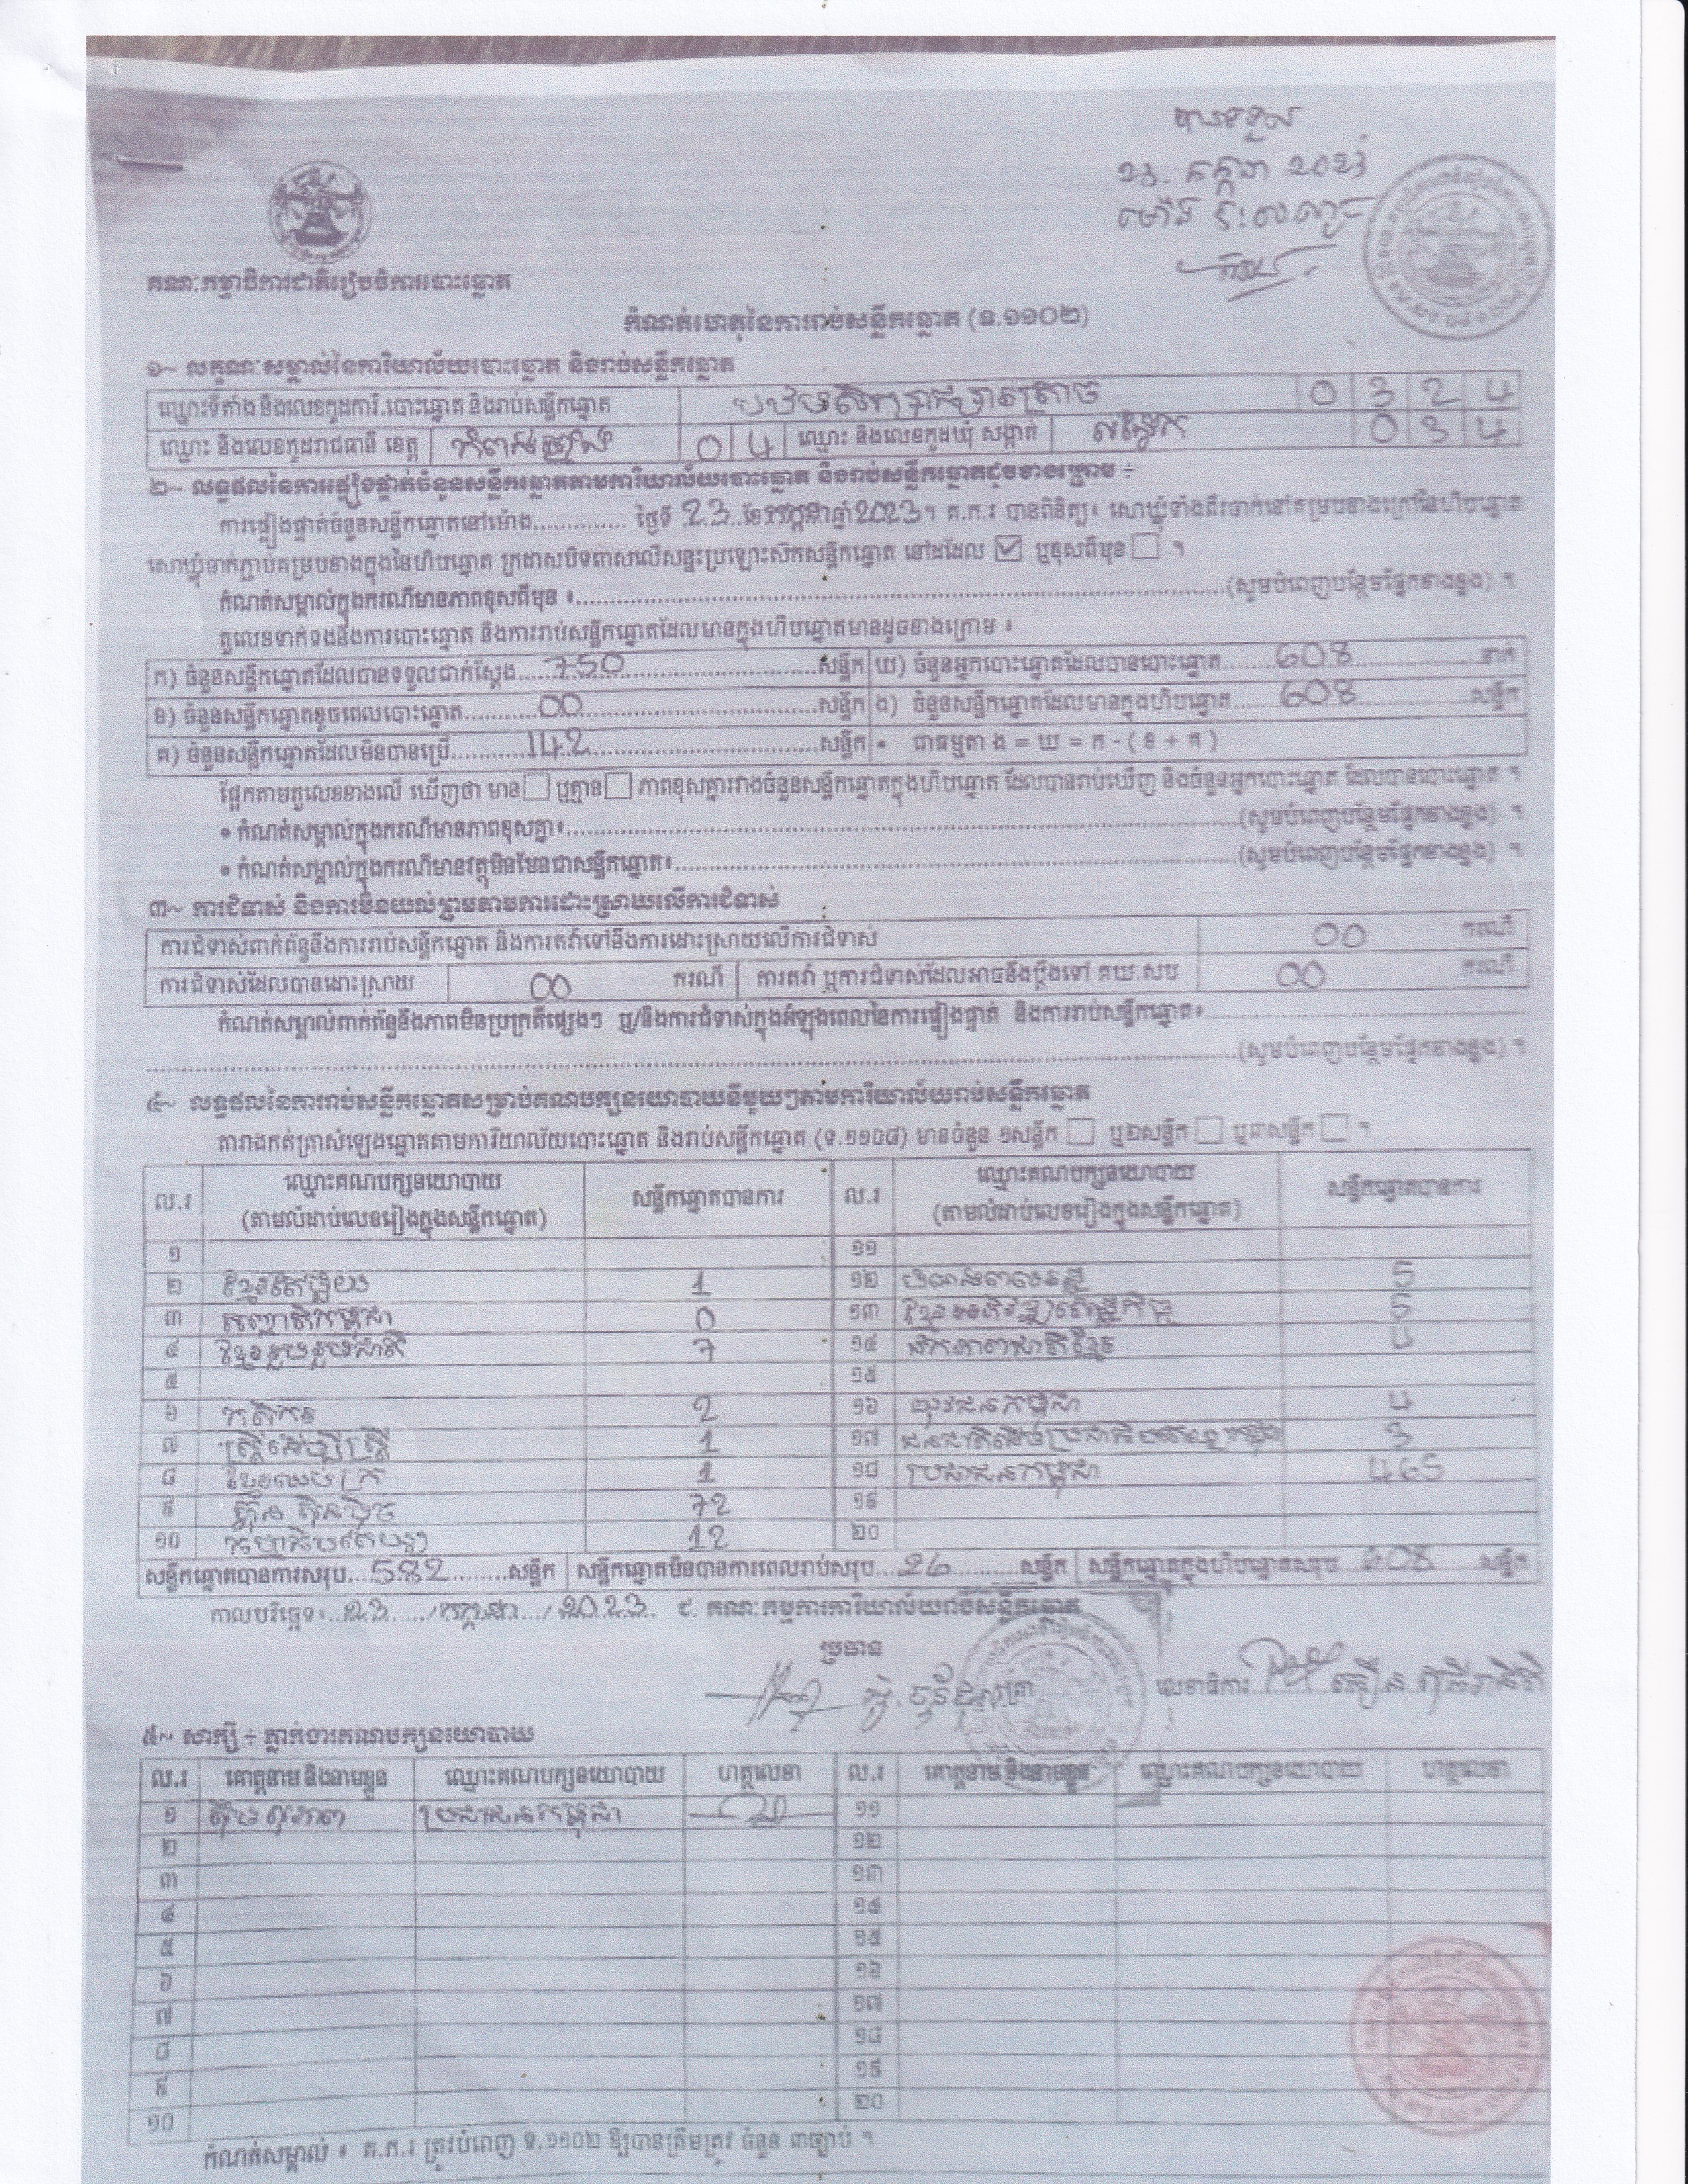 បានទទួល
23. កក្កដា 2023
គណៈកម្មាធិការជាតិរៀបចំការបោះឆ្នោត
កំណត់ហេតុនៃការរាប់សន្លឹកឆ្នោត (ទ.១១០២)
១~ លក្ខណៈសម្គាល់នៃការិយាល័យបោះឆ្នោត និងរាប់សន្លឹកឆ្នោត
ឈ្មោះទីតាំង និងលេខកូដការិ.បោះឆ្នោត និងរាប់សន្លឹកឆ្នោត 0 3 2 4
ឈ្មោះ និងលេខកូដរាជធានី ខេត្ត កំពង់ឆ្នាំង 0 4 ឈ្មោះ និងលេខកូដឃុំ សង្កាត់ 0 3 4
២~ លទ្ធផលនៃការផ្ទៀងផ្ទាត់ចំនួនសន្លឹកឆ្នោតតាមការិយាល័យបោះឆ្នោត និងរាប់សន្លឹកឆ្នោតដូចខាងក្រោម ÷
ការផ្ទៀងផ្ទាត់ចំនួនសន្លឹកឆ្នោតនៅម៉ោង.............. ថ្ងៃទី 23 ខែកក្កដាឆ្នាំ2023។ គ.ក.រ បានពិនិត្យ៖ សោឃ្លុំទាំងពីរចាក់នៅគម្របខាងក្រៅនៃហិបឆ្នោត
សោឃ្លុំចាក់ភ្ជាប់គម្របខាងក្នុងនៃហិបឆ្នោត ក្រដាសបិទពាសលើសន្ទះប្រឡោះសិកសន្លឹកឆ្នោត នៅដដែល ☑ ឬខុសពីមុន ☐ ។
កំណត់សម្គាល់ក្នុងករណីមានភាពខុសពីមុន ៖..............(សូមបំពេញបន្ថែមផ្នែកខាងខ្នង) ។
តួលេខទាក់ទងនឹងការបោះឆ្នោត និងការរាប់សន្លឹកឆ្នោតដែលមានក្នុងហិបឆ្នោតមានដូចខាងក្រោម ៖
ក) ចំនួនសន្លឹកឆ្នោតដែលបានទទួលជាក់ស្តែង 750 សន្លឹក ឃ) ចំនួនអ្នកបោះឆ្នោតដែលបានបោះឆ្នោត 608 នាក់
ខ) ចំនួនសន្លឹកឆ្នោតខូចពេលបោះឆ្នោត 00 សន្លឹក ង) ចំនួនសន្លឹកឆ្នោតដែលមានក្នុងហិបឆ្នោត 608 សន្លឹក
គ) ចំនួនសន្លឹកឆ្នោតដែលមិនបានប្រើ 142 សន្លឹក • ជាធម្មតា ង = ឃ = ក - ( ខ + គ )
ផ្អែកតាមតួលេខខាងលើ ឃើញថា មាន ☐ ឬគ្មាន ☐ ភាពខុសគ្នារវាងចំនួនសន្លឹកឆ្នោតក្នុងហិបឆ្នោត ដែលបានរាប់ឃើញ និងចំនួនអ្នកបោះឆ្នោត ដែលបានបោះឆ្នោត ។
• កំណត់សម្គាល់ក្នុងករណីមានភាពខុសគ្នា៖..............(សូមបំពេញបន្ថែមផ្នែកខាងខ្នង) ។
• កំណត់សម្គាល់ក្នុងករណីមានវត្ថុមិនមែនជាសន្លឹកឆ្នោត៖..............(សូមបំពេញបន្ថែមផ្នែកខាងខ្នង) ។
៣~ ការជំទាស់ និងការមិនយល់ព្រមតាមការដោះស្រាយលើការជំទាស់
ការជំទាស់ពាក់ព័ន្ធនឹងការរាប់សន្លឹកឆ្នោត និងការតវ៉ាទៅនឹងការដោះស្រាយលើការជំទាស់ 00 ករណី
ការជំទាស់ដែលបានដោះស្រាយ 00 ករណី ការតវ៉ា ឬការជំទាស់ដែលអាចនឹងប្តឹងទៅ គឃ.សប 00 ករណី
កំណត់សម្គាល់ពាក់ព័ន្ធនឹងភាពមិនប្រក្រតីផ្សេងៗ ឬ/និងការជំទាស់ក្នុងអំឡុងពេលនៃការផ្ទៀងផ្ទាត់ និងការរាប់សន្លឹកឆ្នោត៖..............
..............(សូមបំពេញបន្ថែមផ្នែកខាងខ្នង) ។
៤~ លទ្ធផលនៃការរាប់សន្លឹកឆ្នោតសម្រាប់គណបក្សនយោបាយនីមួយៗតាមការិយាល័យរាប់សន្លឹកឆ្នោត
តារាងកត់ត្រាសំឡេងឆ្នោតតាមការិយាល័យបោះឆ្នោត និងរាប់សន្លឹកឆ្នោត (ទ.១១០៨) មានចំនួន ១សន្លឹក ☐ ឬ២សន្លឹក ☐ ឬ៣សន្លឹក ☐ ។
ល.រ ឈ្មោះគណបក្សនយោបាយ (តាមលំដាប់លេខរៀងក្នុងសន្លឹកឆ្នោត) សន្លឹកឆ្នោតបានការ ល.រ ឈ្មោះគណបក្សនយោបាយ (តាមលំដាប់លេខរៀងក្នុងសន្លឹកឆ្នោត) សន្លឹកឆ្នោតបានការ
១ ១១
២ 1 ១២ 5
៣ 0 ១៣ ខ្មែរអភិវឌ្ឍន៍សេដ្ឋកិច្ច 5
៤ ខ្មែររួបរួមជាតិ 7 ១៤ ឯកភាពជាតិខ្មែរ 4
៥ ១៥
៦ កសិករ 2 ១៦ យុវជនកម្ពុជា 4
៧ ស្ត្រីដើម្បីស្ត្រី 1 ១៧ 3
៨ ខ្មែរឈប់ក្រ 1 ១៨ ប្រជាជនកម្ពុជា 465
៩ ហ៊្វុនស៊ិនប៉ិច 72 ១៩
១០ 12 ២០
សន្លឹកឆ្នោតបានការសរុប 582 សន្លឹក សន្លឹកឆ្នោតមិនបានការពេលរាប់សរុប 26 សន្លឹក សន្លឹកឆ្នោតក្នុងហិបឆ្នោតសរុប 608 សន្លឹក
កាលបរិច្ឆេទ៖ 23 / កក្កដា / 2023 ជ. គណៈកម្មការការិយាល័យរាប់សន្លឹកឆ្នោត
ប្រធាន
លេខាធិការ
៥~ សាក្សី ÷ ភ្នាក់ងារគណបក្សនយោបាយ
ល.រ គោត្តនាម និងនាមខ្លួន ឈ្មោះគណបក្សនយោបាយ ហត្ថលេខា ល.រ គោត្តនាម និងនាមខ្លួន ឈ្មោះគណបក្សនយោបាយ ហត្ថលេខា
១ ប្រជាជនកម្ពុជា ១១
២ ១២
៣ ១៣
៤ ១៤
៥ ១៥
៦ ១៦
៧ ១៧
៨ ១៨
៩ ១៩
១០ ២០
កំណត់សម្គាល់ ៖ គ.ក.រ ត្រូវបំពេញ ទ.១១០២ ឱ្យបានត្រឹមត្រូវ ចំនួន ៣ច្បាប់ ។